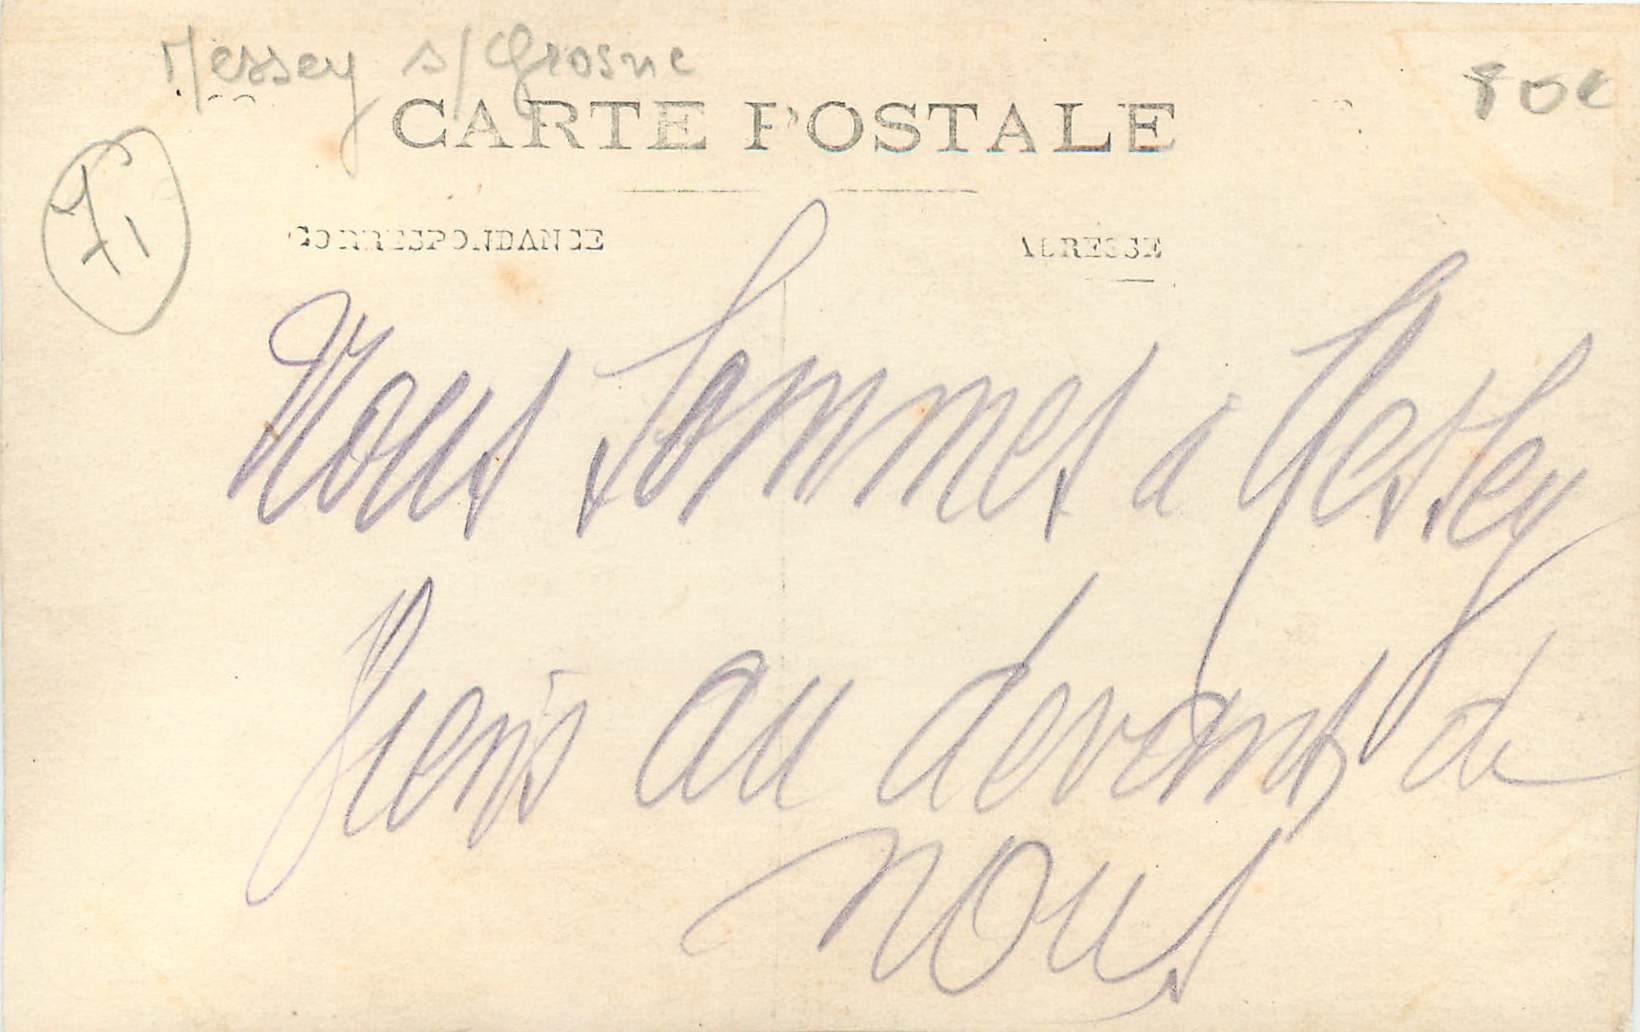 Messey s/Grosne
80€
CARTE POSTALE
71
CORRESPONDANCE
ADRESSE
Nous sommes à Messey
Viens au devant de
nous